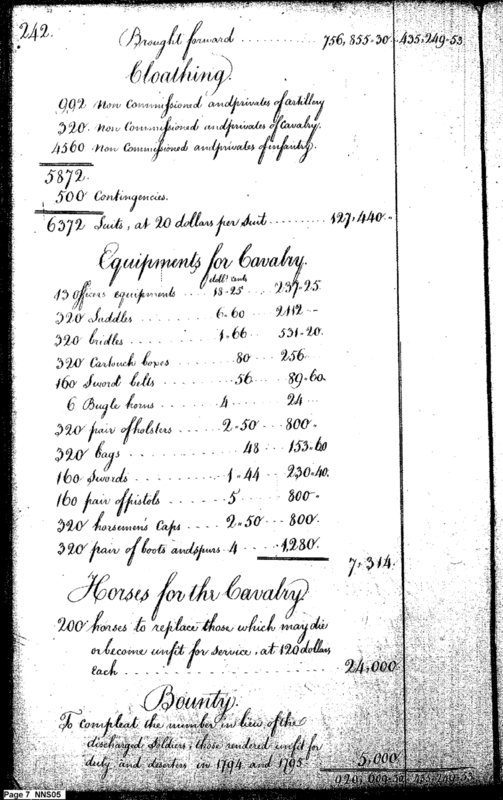 242.
Brought forward 756,855-30 435,249-53
Cloathing.
992 Non Commissioned and privates of artillery
320. Non Commissioned and privates of Cavalry.
4560 Non Commissioned and privates of infantry.
5872.
500 Contingencies.
6372 Suits, at 20 dollars per Suit 127,440-
Equipments for Cavalry.
doll.s cents
13 Officers equipments 18-25 237-25
320 Saddles 6-60 2112--
320 bridles 1-66 531-20.
320 Cartouch boxes 80 256
160 Sword belts 56 89-60
6 Bugle horns 4 24
320 pair of holsters 2-50 800-
320 bags 48 153-60
160 Swords 1-44 230-40.
160 pair of pistols 5 800-
320 horsemen's Caps 2-50 800.
320 pair of boots and spurs 4 1,280.
7,314.
Horses for the Cavalry
200 horses to replace those which may die
or become unfit for service, at 120 dollars
each 24,000
Bounty.
To compleat the number in lieu of the
discharged Soldiers, those rendered unfit for
duty, and deserters in 1794 and 1795 5,000
435-249-53
Page 7 NNS05